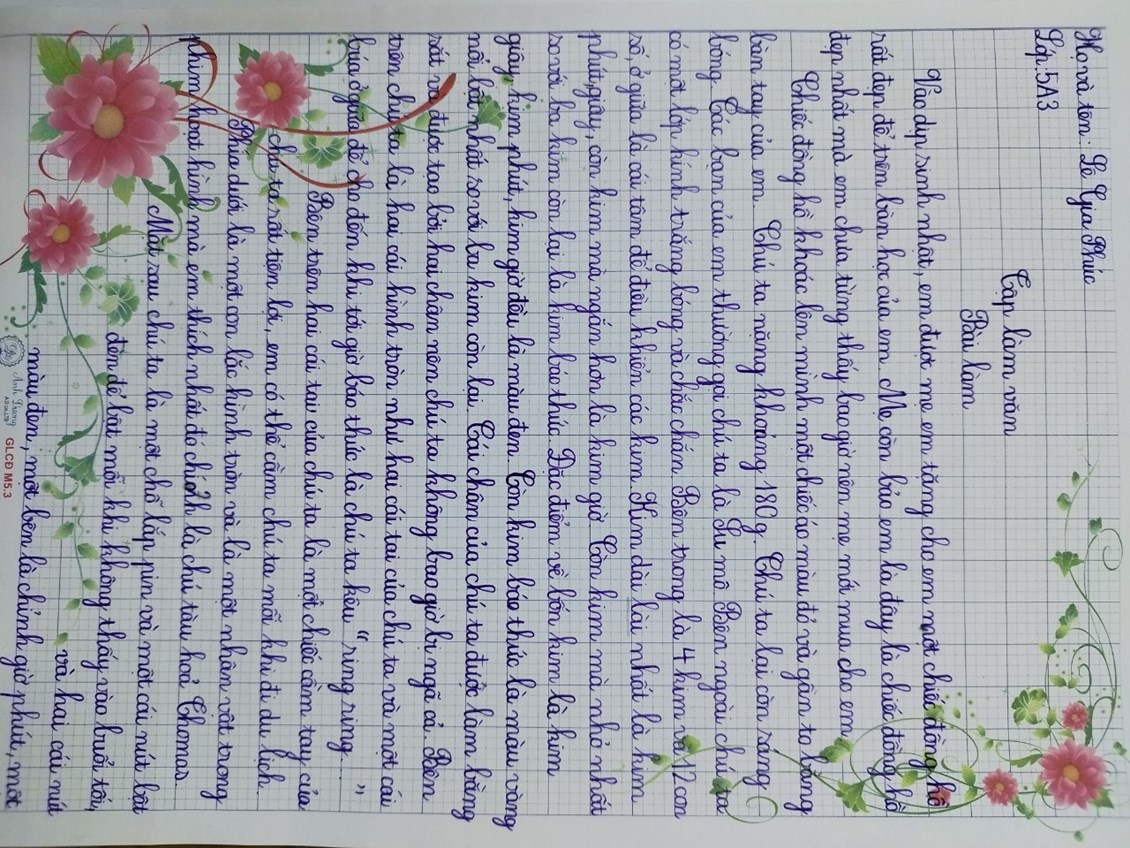 Họ và tên: Lê Gia Phúc
Lớp: 5A3
Tập làm văn
Bài làm
Vào dịp sinh nhật, em được mẹ em tặng cho em một chiếc đồng hồ
rất đẹp để trên bàn học của em. Mẹ còn bảo em là đây là chiếc đồng hồ
đẹp nhất mà em chưa từng thấy bao giờ nên mẹ mới mua cho em.
Chiếc đồng hồ khoác lên mình một chiếc áo màu đỏ và gần to bằng
bàn tay của em. Chú ta nặng khoảng 180g. Chú ta lại còn sáng
bóng. Các bạn của em thường gọi chú ta là Su mô. Bên ngoài chú ta
có một lớp kính trắng bóng và chắc chắn. Bên trong là 4 kim và 12 con
số, ở giữa là cái tâm để điều khiển các kim. Kim dài lài nhất là kim
phút, giây, còn kim mà ngắn hơn là kim giờ. Còn kim mà nhỏ nhất
so với ba kim còn lại là kim báo thức. Đặc điểm về bốn kim là kim
giây, kim phút, kim giờ đều là màu đen. Còn kim báo thức là màu vàng
nổi bật nhất so với ba kim còn lại. Cái chân của chú ta được làm bằng
sắt và được tạo bởi hai chân nên chú ta không bao giờ bị ngã cả. Bên
trên chú ta là hai cái hình tròn như hai cái tai của chú ta và một cái
búa ở giữa để cho đến khi tới giờ báo thức là chú ta kêu "ring ring.... "
Bên trên hai cái tai của chú ta là một chiếc cầm tay của
chú ta rất tiện lợi, em có thể cầm chú ta mỗi khi đi du lịch.
Phía dưới là một con lắc hình tròn và là một nhân vật trong
phim hoạt hình mà em thích nhất đó chính là chú tàu hoả Thomas.
Mặt sau chú ta là một chỗ lắp pin và một cái nút bật
đèn để bật mỗi khi không thấy vào buổi tối,
và hai cái nút
màu đen, một bên là chỉnh giờ phút, một
Anh Dương
GLCĐ M5.3